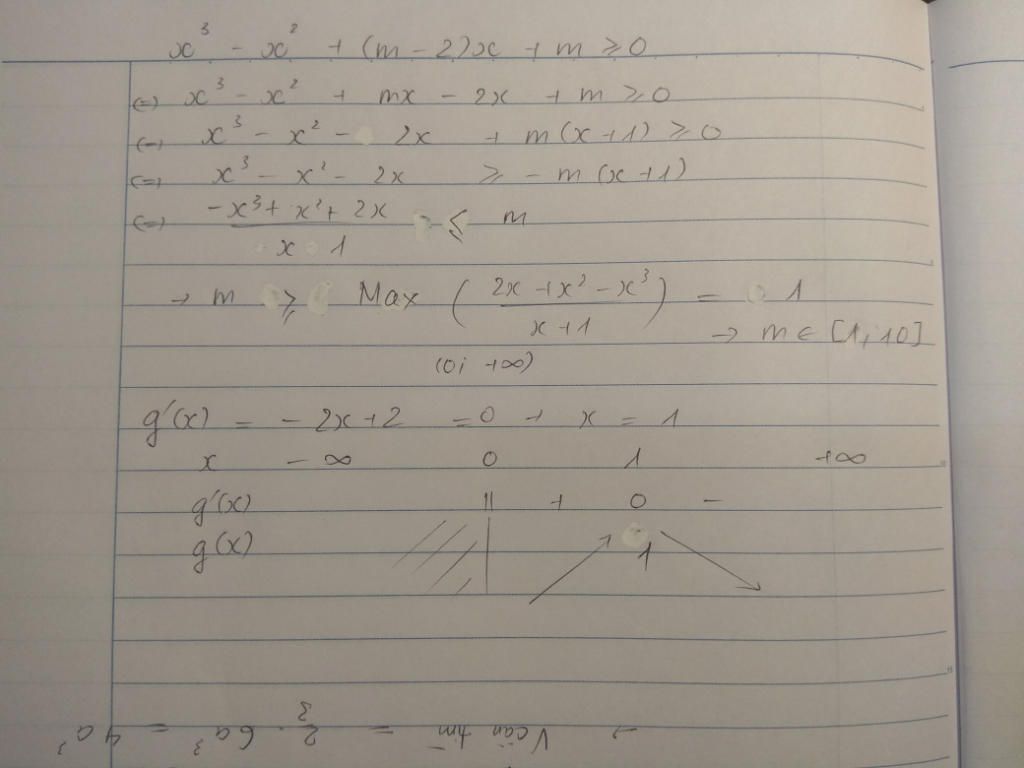 x³ - x² + (m - 2)x + m ≥ 0
(=) x³ - x² + mx - 2x + m ≥ 0
(=) x³ - x² - 2x + m(x+1) ≥ 0
(=) x³ - x² - 2x ≥ - m(x+1)
(=) (-x³ + x² + 2x) / (x 1) ≤ m
→ m ≥ Max ( (2x + x² - x³) / (x+1) ) = 1
(0; +∞)
→ m ∈ [1; 10]
g'(x) = - 2x + 2 = 0 + x = 1
x - ∞ 0 1 +∞
g'(x) || + 0 -
g(x) 1
→ V cần tìm = 2/3 . 6a³ = 4a³